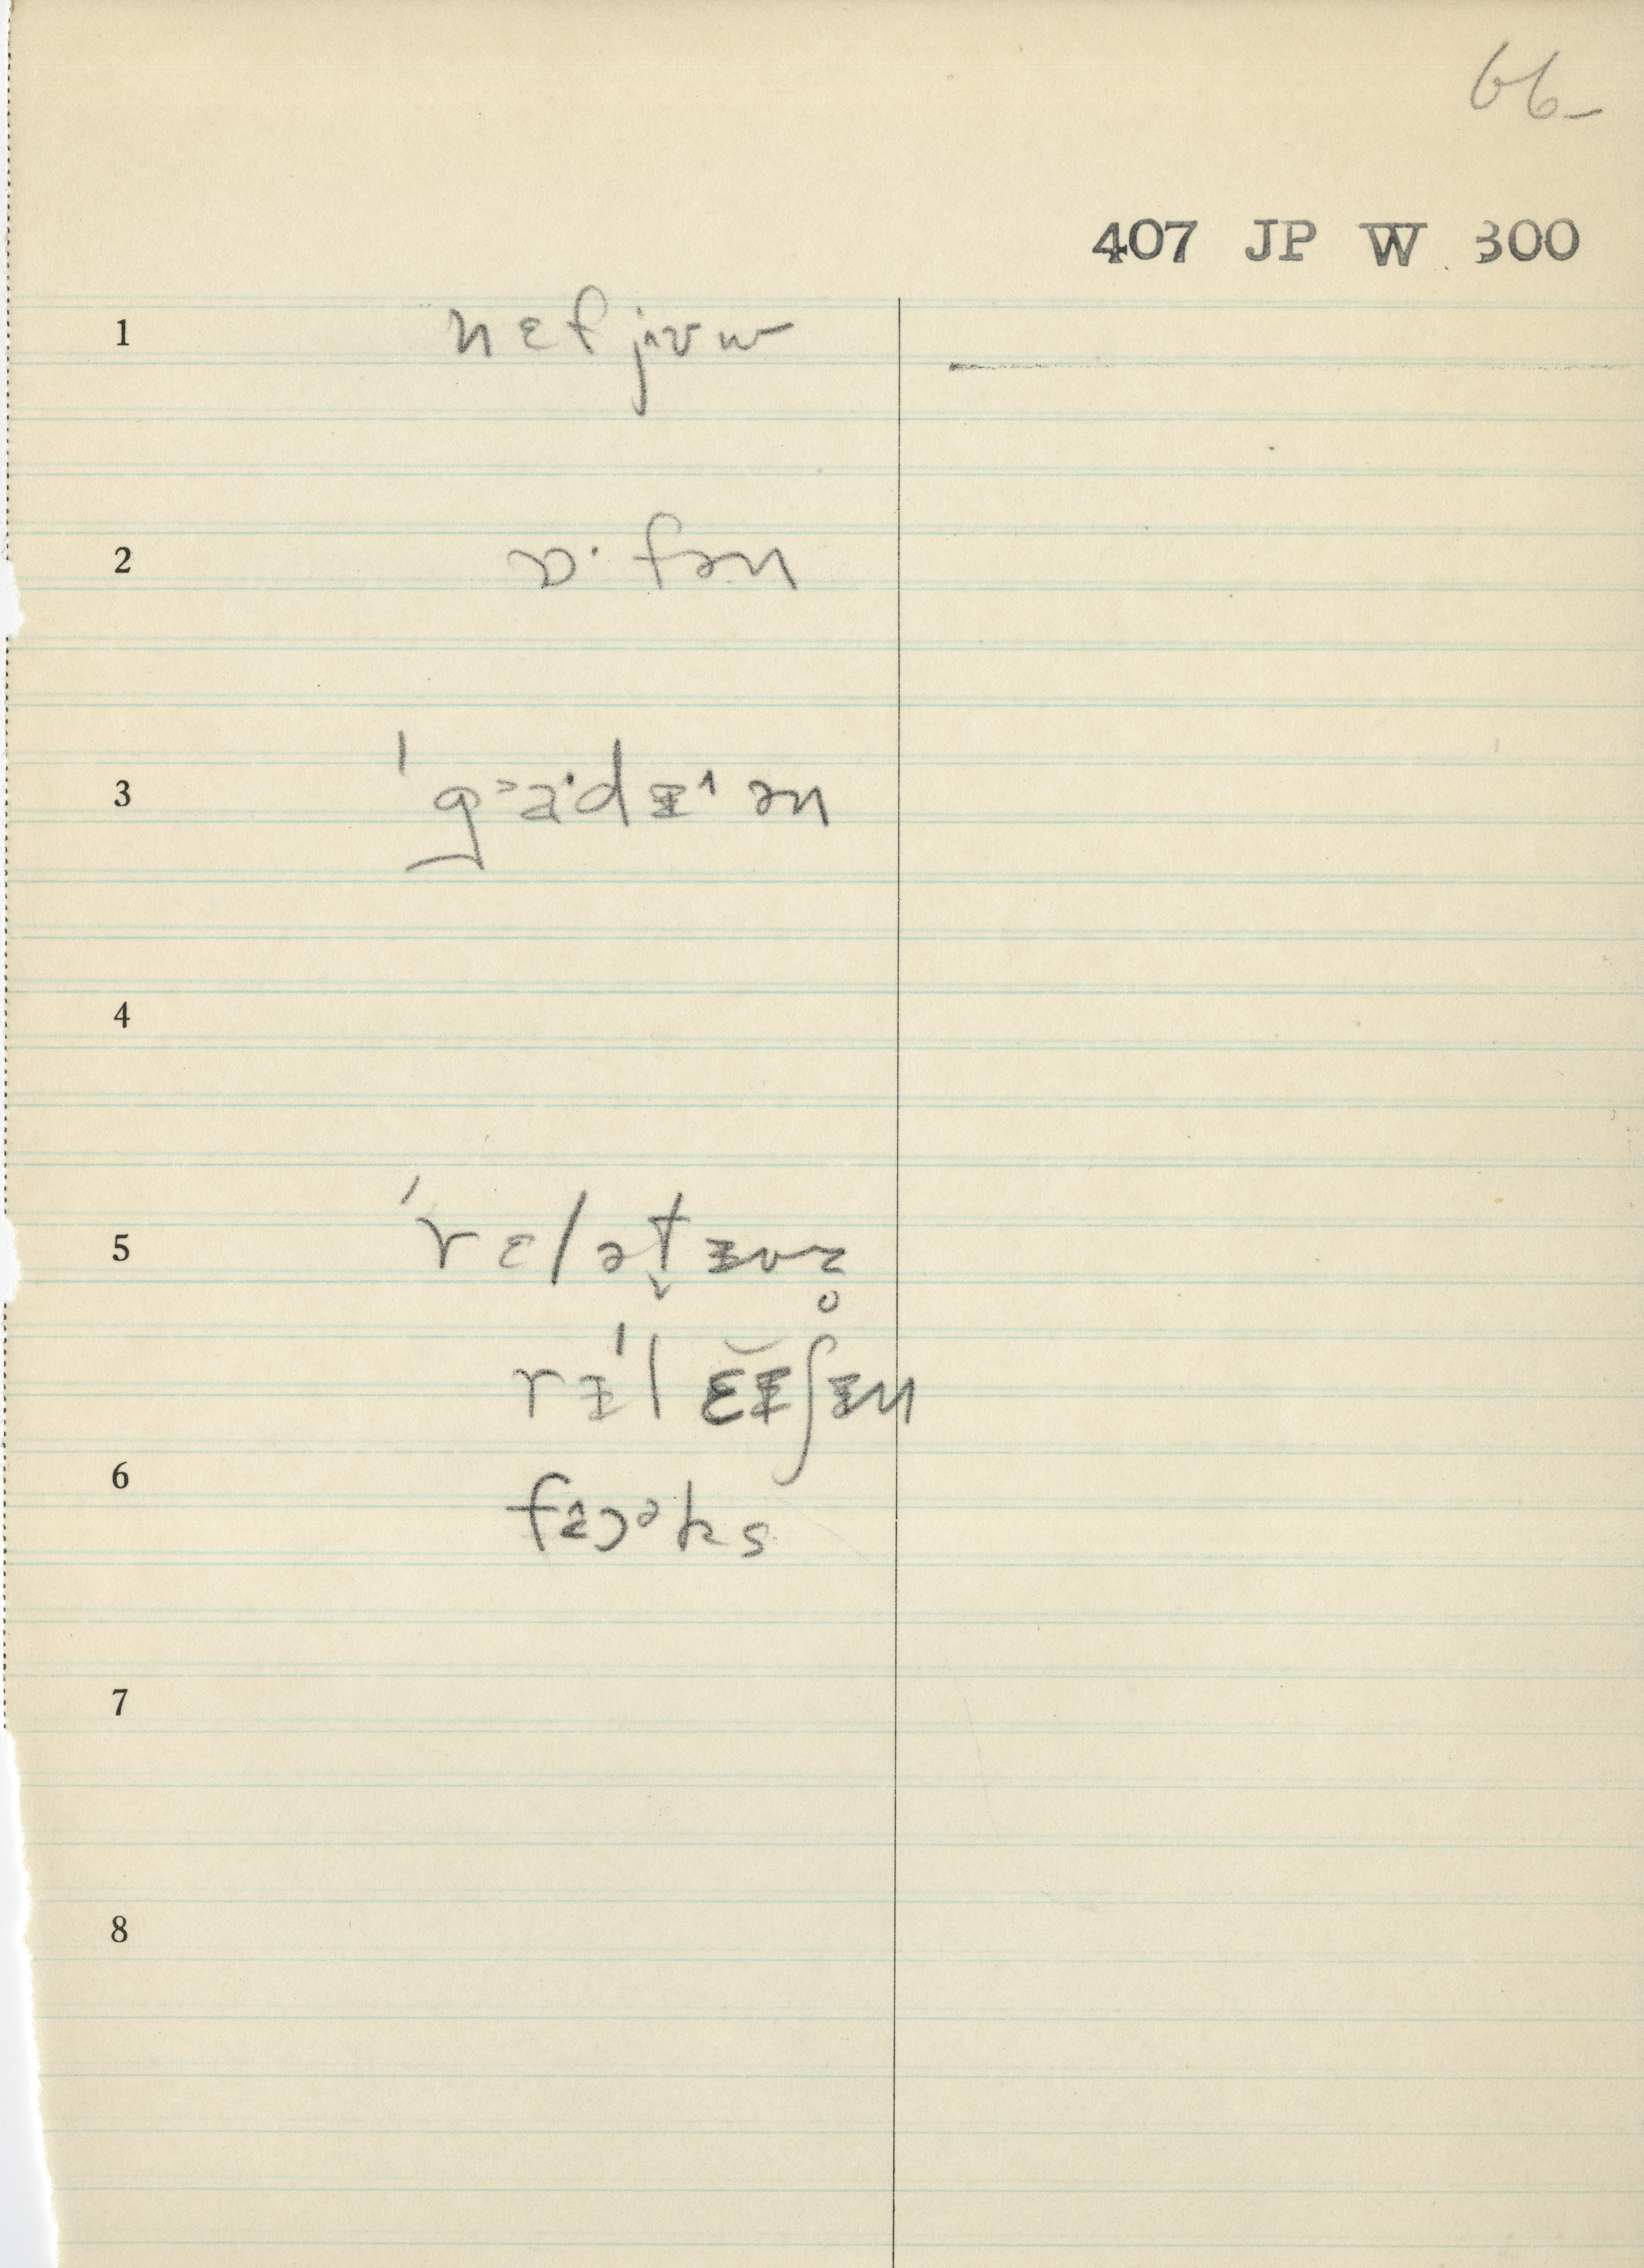 66
407 JP W 300
1 nɛf jʌʊw
2 ɒ· fən
3 ˈg˃a·dɪ^ ən
4
5 ˈrɛlət̬ɪvz̥
rɪˈl ɛ̆ɪʃɪn
6 fɔəks
7
8